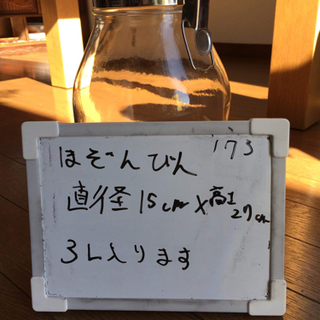 173
ほぞんびん
直径15cm×高さ27cm
3L入ります